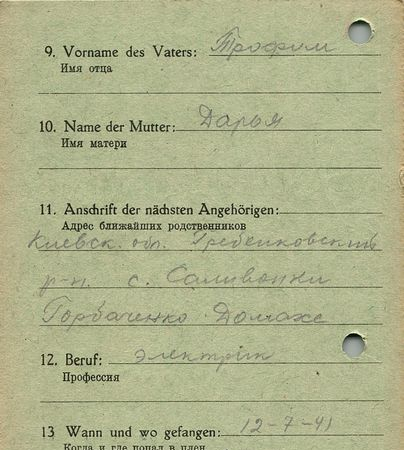 9. Vorname des Vaters: Трофим
Имя отца
10. Name der Mutter: Дарья
Имя матери
11. Anschrift der nächsten Angehörigen:
Адрес ближайших родственников
Киевск. обл. Гребенковский
р-н. с. Саливонки
Горбаченко
12. Beruf: электрік
Профессия
13 Wann und wo gefangen: 12-7-41
Когда и где попал в плен